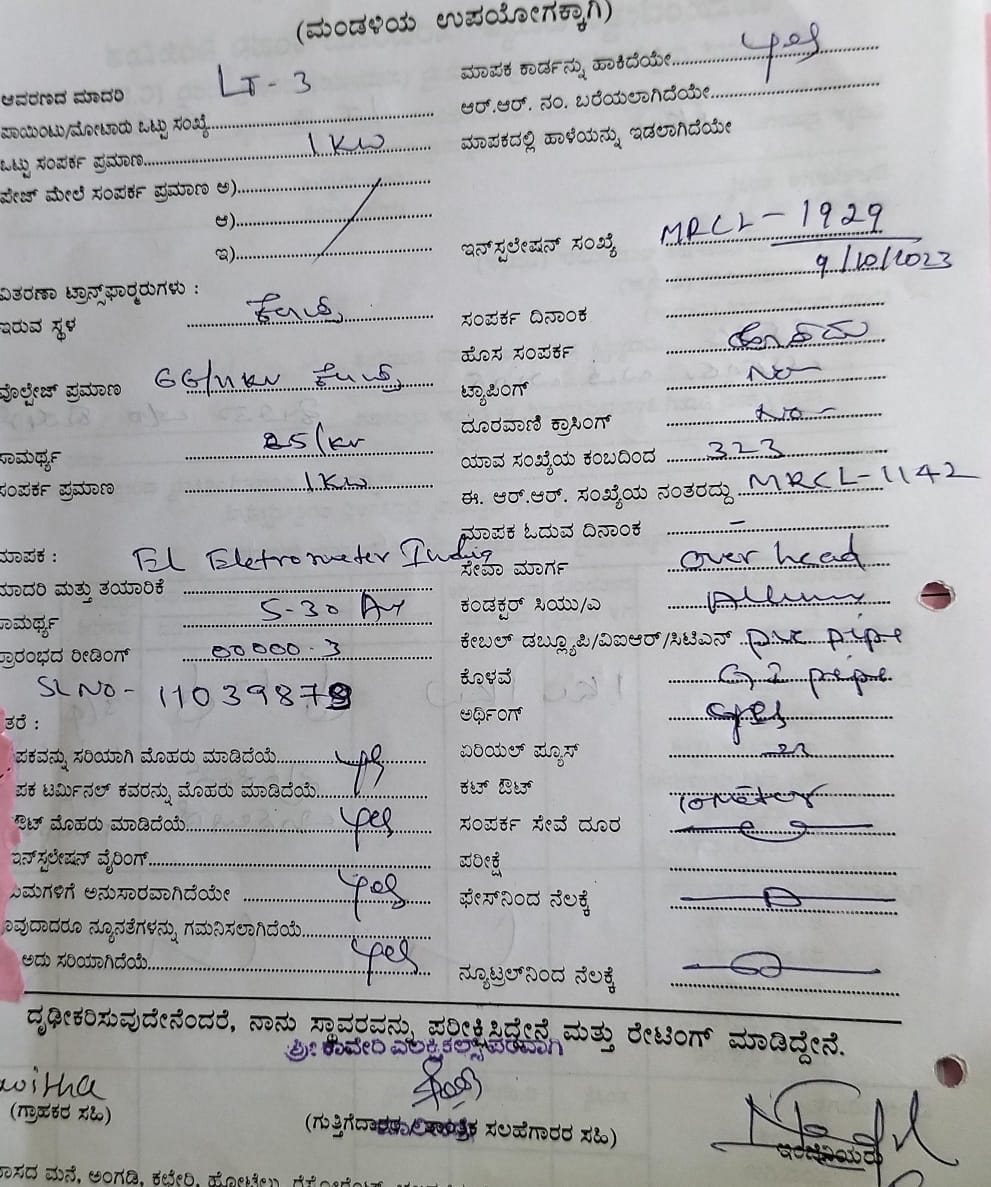 (ಮಂಡಳಿಯ ಉಪಯೋಗಕ್ಕಾಗಿ)
ಆವರಣದ ಮಾದರಿ LT - 3
ಪಾಯಿಂಟು/ಮೋಟಾರು ಒಟ್ಟು ಸಂಖ್ಯೆ
ಒಟ್ಟು ಸಂಪರ್ಕ ಪ್ರಮಾಣ 1 KW
ಪೇಜ್ ಮೇಲೆ ಸಂಪರ್ಕ ಪ್ರಮಾಣ ಅ)
ಆ)
ಇ)
ವಿತರಣಾ ಟ್ರಾನ್ಸ್‌ಫಾರ್ಮರುಗಳು :
ಇರುವ ಸ್ಥಳ
ವೊಲ್ಟೇಜ್ ಪ್ರಮಾಣ 66/11 KV
ಸಾಮರ್ಥ್ಯ 25/kv
ಸಂಪರ್ಕ ಪ್ರಮಾಣ 1 KW
ಮಾಪಕ : El Eletrometer India
ಮಾದರಿ ಮತ್ತು ತಯಾರಿಕೆ
ಸಾಮರ್ಥ್ಯ 5-30 A
ಪ್ರಾರಂಭದ ರೀಡಿಂಗ್ 00000.3
SL NO - 11039878
ಇತರೆ :
ಮಾಪಕವನ್ನು ಸರಿಯಾಗಿ ಮೊಹರು ಮಾಡಿದೆಯೆ yes
ಮಾಪಕ ಟರ್ಮಿನಲ್ ಕವರನ್ನು ಮೊಹರು ಮಾಡಿದೆಯೆ
ಔಟ್ ಮೊಹರು ಮಾಡಿದೆಯೆ yes
ಇನ್‌ಸ್ಟಲೇಷನ್ ವೈರಿಂಗ್
ನಿಯಮಗಳಿಗೆ ಅನುಸಾರವಾಗಿದೆಯೇ yes
ಯಾವುದಾದರೂ ನ್ಯೂನತೆಗಳನ್ನು ಗಮನಿಸಲಾಗಿದೆಯೆ
ಅದು ಸರಿಯಾಗಿದೆಯೆ yes
ಮಾಪಕ ಕಾರ್ಡನ್ನು ಹಾಕಿದೆಯೇ yes
ಆರ್.ಆರ್. ನಂ. ಬರೆಯಲಾಗಿದೆಯೇ
ಮಾಪಕದಲ್ಲಿ ಹಾಳೆಯನ್ನು ಇಡಲಾಗಿದೆಯೇ
ಇನ್‌ಸ್ಟಲೇಷನ್ ಸಂಖ್ಯೆ MRCL - 1929
9/10/2023
ಸಂಪರ್ಕ ದಿನಾಂಕ
ಹೊಸ ಸಂಪರ್ಕ ಹೊಸದು
ಟ್ಯಾಪಿಂಗ್ No
ದೂರವಾಣಿ ಕ್ರಾಸಿಂಗ್ No
ಯಾವ ಸಂಖ್ಯೆಯ ಕಂಬದಿಂದ 323
ಈ. ಆರ್.ಆರ್. ಸಂಖ್ಯೆಯ ನಂತರದ್ದು MRCL-1142
ಮಾಪಕ ಓದುವ ದಿನಾಂಕ -
ಸೇವಾ ಮಾರ್ಗ over head
ಕಂಡಕ್ಟರ್ ಸಿಯು/ಎ
ಕೇಬಲ್ ಡಬ್ಲ್ಯೂಪಿ/ವಿಐಆರ್/ಸಿಟಿಎನ್ pvc pipe
ಕೊಳವೆ G I pipe
ಅರ್ಥಿಂಗ್ yes
ಏರಿಯಲ್ ಫ್ಯೂಸ್
ಕಟ್ ಔಟ್
ಸಂಪರ್ಕ ಸೇವೆ ದೂರ 10 meter
ಪರೀಕ್ಷೆ
ಫೇಸ್‌ನಿಂದ ನೆಲಕ್ಕೆ
ನ್ಯೂಟ್ರಲ್‌ನಿಂದ ನೆಲಕ್ಕೆ
ದೃಢೀಕರಿಸುವುದೇನೆಂದರೆ, ನಾನು ಸ್ಥಾವರವನ್ನು ಪರೀಕ್ಷಿಸಿದ್ದೇನೆ ಮತ್ತು ರೇಟಿಂಗ್ ಮಾಡಿದ್ದೇನೆ.
ಶ್ರೀ ಕಾವೇರಿ ಎಲಕ್ಟ್ರಿಕಲ್ಸ್ ಪರವಾಗಿ
(ಗ್ರಾಹಕರ ಸಹಿ)
(ಗುತ್ತಿಗೆದಾರರ / ತಾಂತ್ರಿಕ ಸಲಹೆಗಾರರ ಸಹಿ)
ಇಂಜಿನಿಯರು
ವಾಸದ ಮನೆ, ಅಂಗಡಿ, ಕಛೇರಿ, ಹೋಟೆಲು